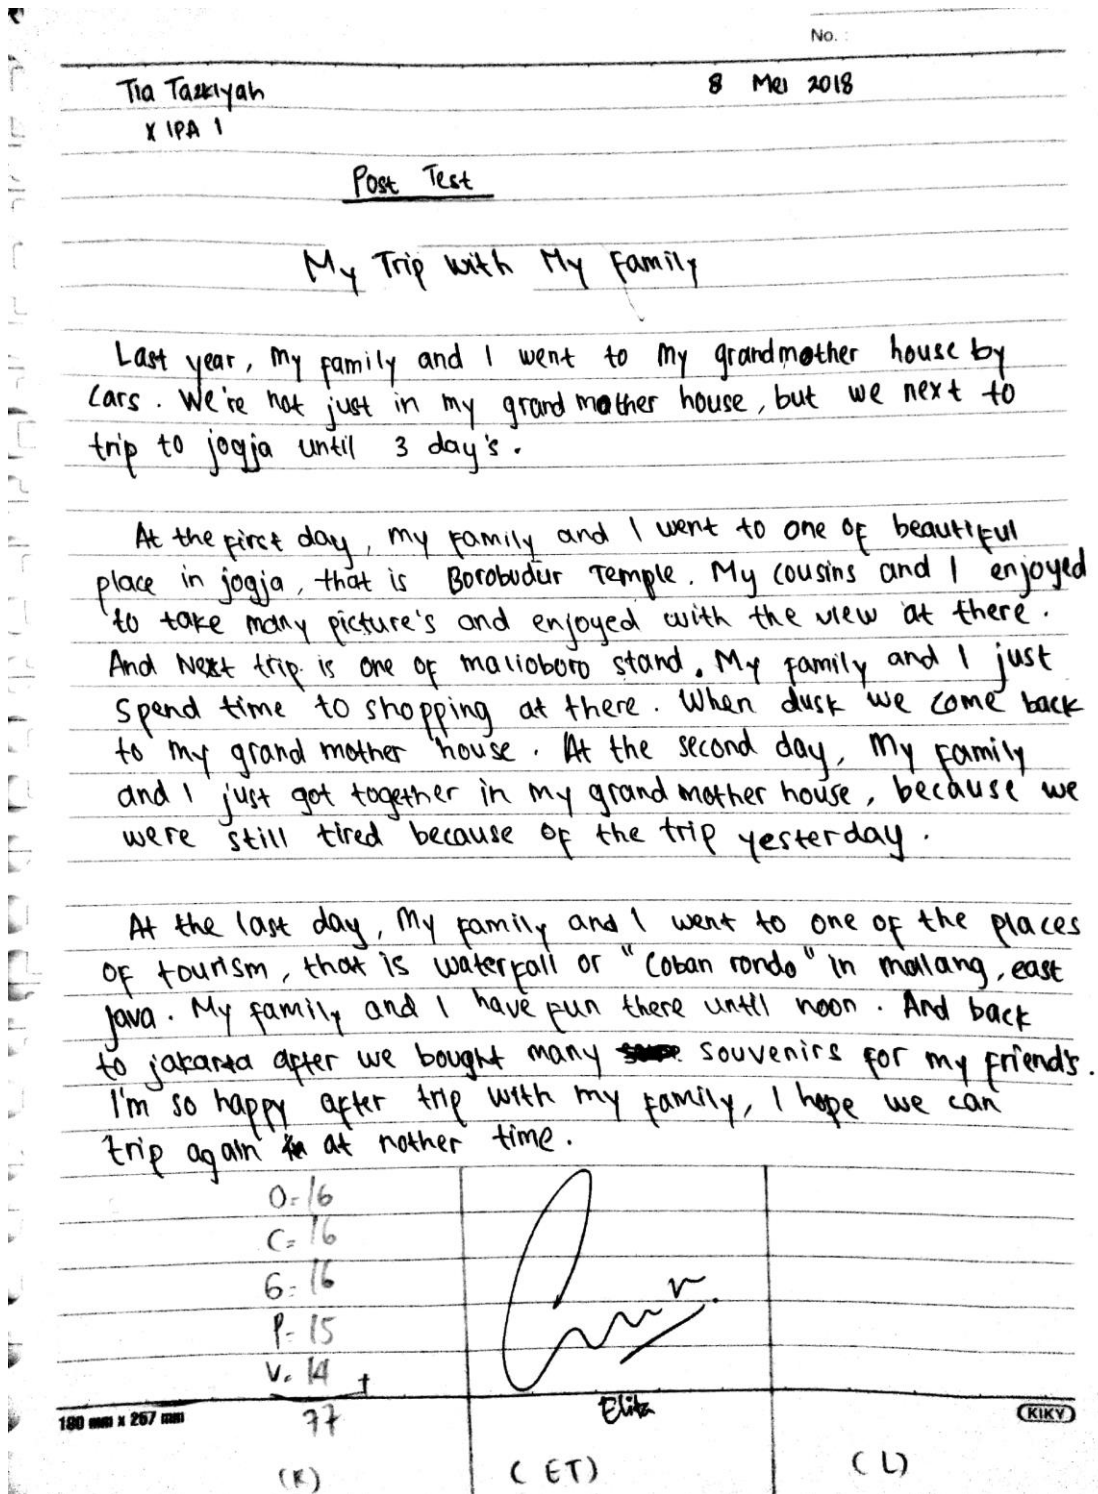 No. :
Tia Tazkiyah 8 Mei 2018
X IPA 1
Post Test
My Trip with My Family
Last year, my family and I went to my grandmother house by
cars. We're not just in my grand mother house, but we next to
trip to jogja until 3 day's.
At the first day, my family and I went to one of beautiful
place in jogja, that is Borobudur Temple. My cousins and I enjoyed
to take many picture's and enjoyed with the view at there.
And Next trip is one of malioboro stand. My family and I just
Spend time to shopping at there. When dusk we come back
to my grand mother house. At the second day, my family
and I just got together in my grand mother house, because we
were still tired because of the trip yesterday.
At the last day, My family and I went to one of the places
of tourism, that is waterfall or "Coban rondo" in malang, east
java. My family and I have fun there until noon. And back
to jakarta after we bought many souvenirs for my friend's.
I'm so happy after trip with my family, I hope we can
trip again at nother time.
O = 16
C = 16
G = 16
P = 15
V = 14 +
77
Elita
180 mm x 257 mm KIKY
(R) (ET) (L)